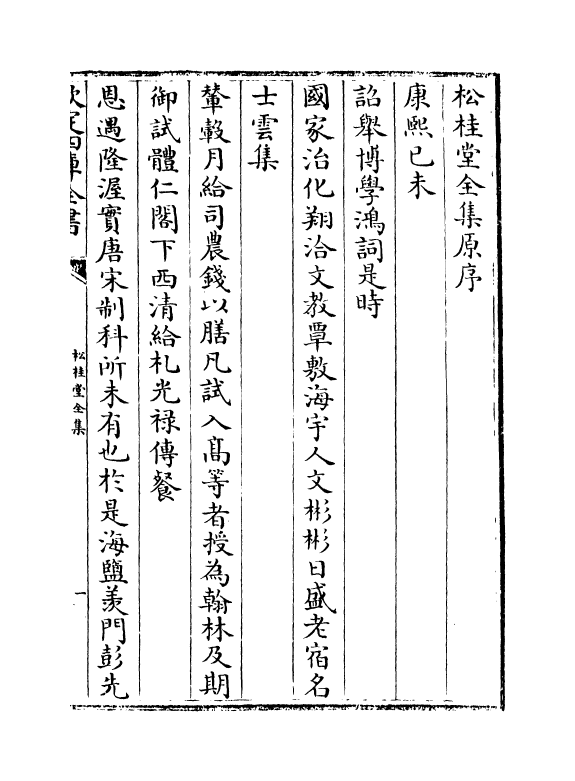 松桂堂全集原序
康熙己未
詔舉博學鴻詞是時
國家治化翔洽文教覃敷海宇人文彬彬日盛老宿名
士雲集
輦轂月給司農錢以膳凡試入髙等者授為翰林及期
御試體仁閣下西清給札光禄傳餐
恩遇隆渥實唐宋制科所未有也於是海鹽羨門彭先
欽定四庫全書
松桂堂全集
一